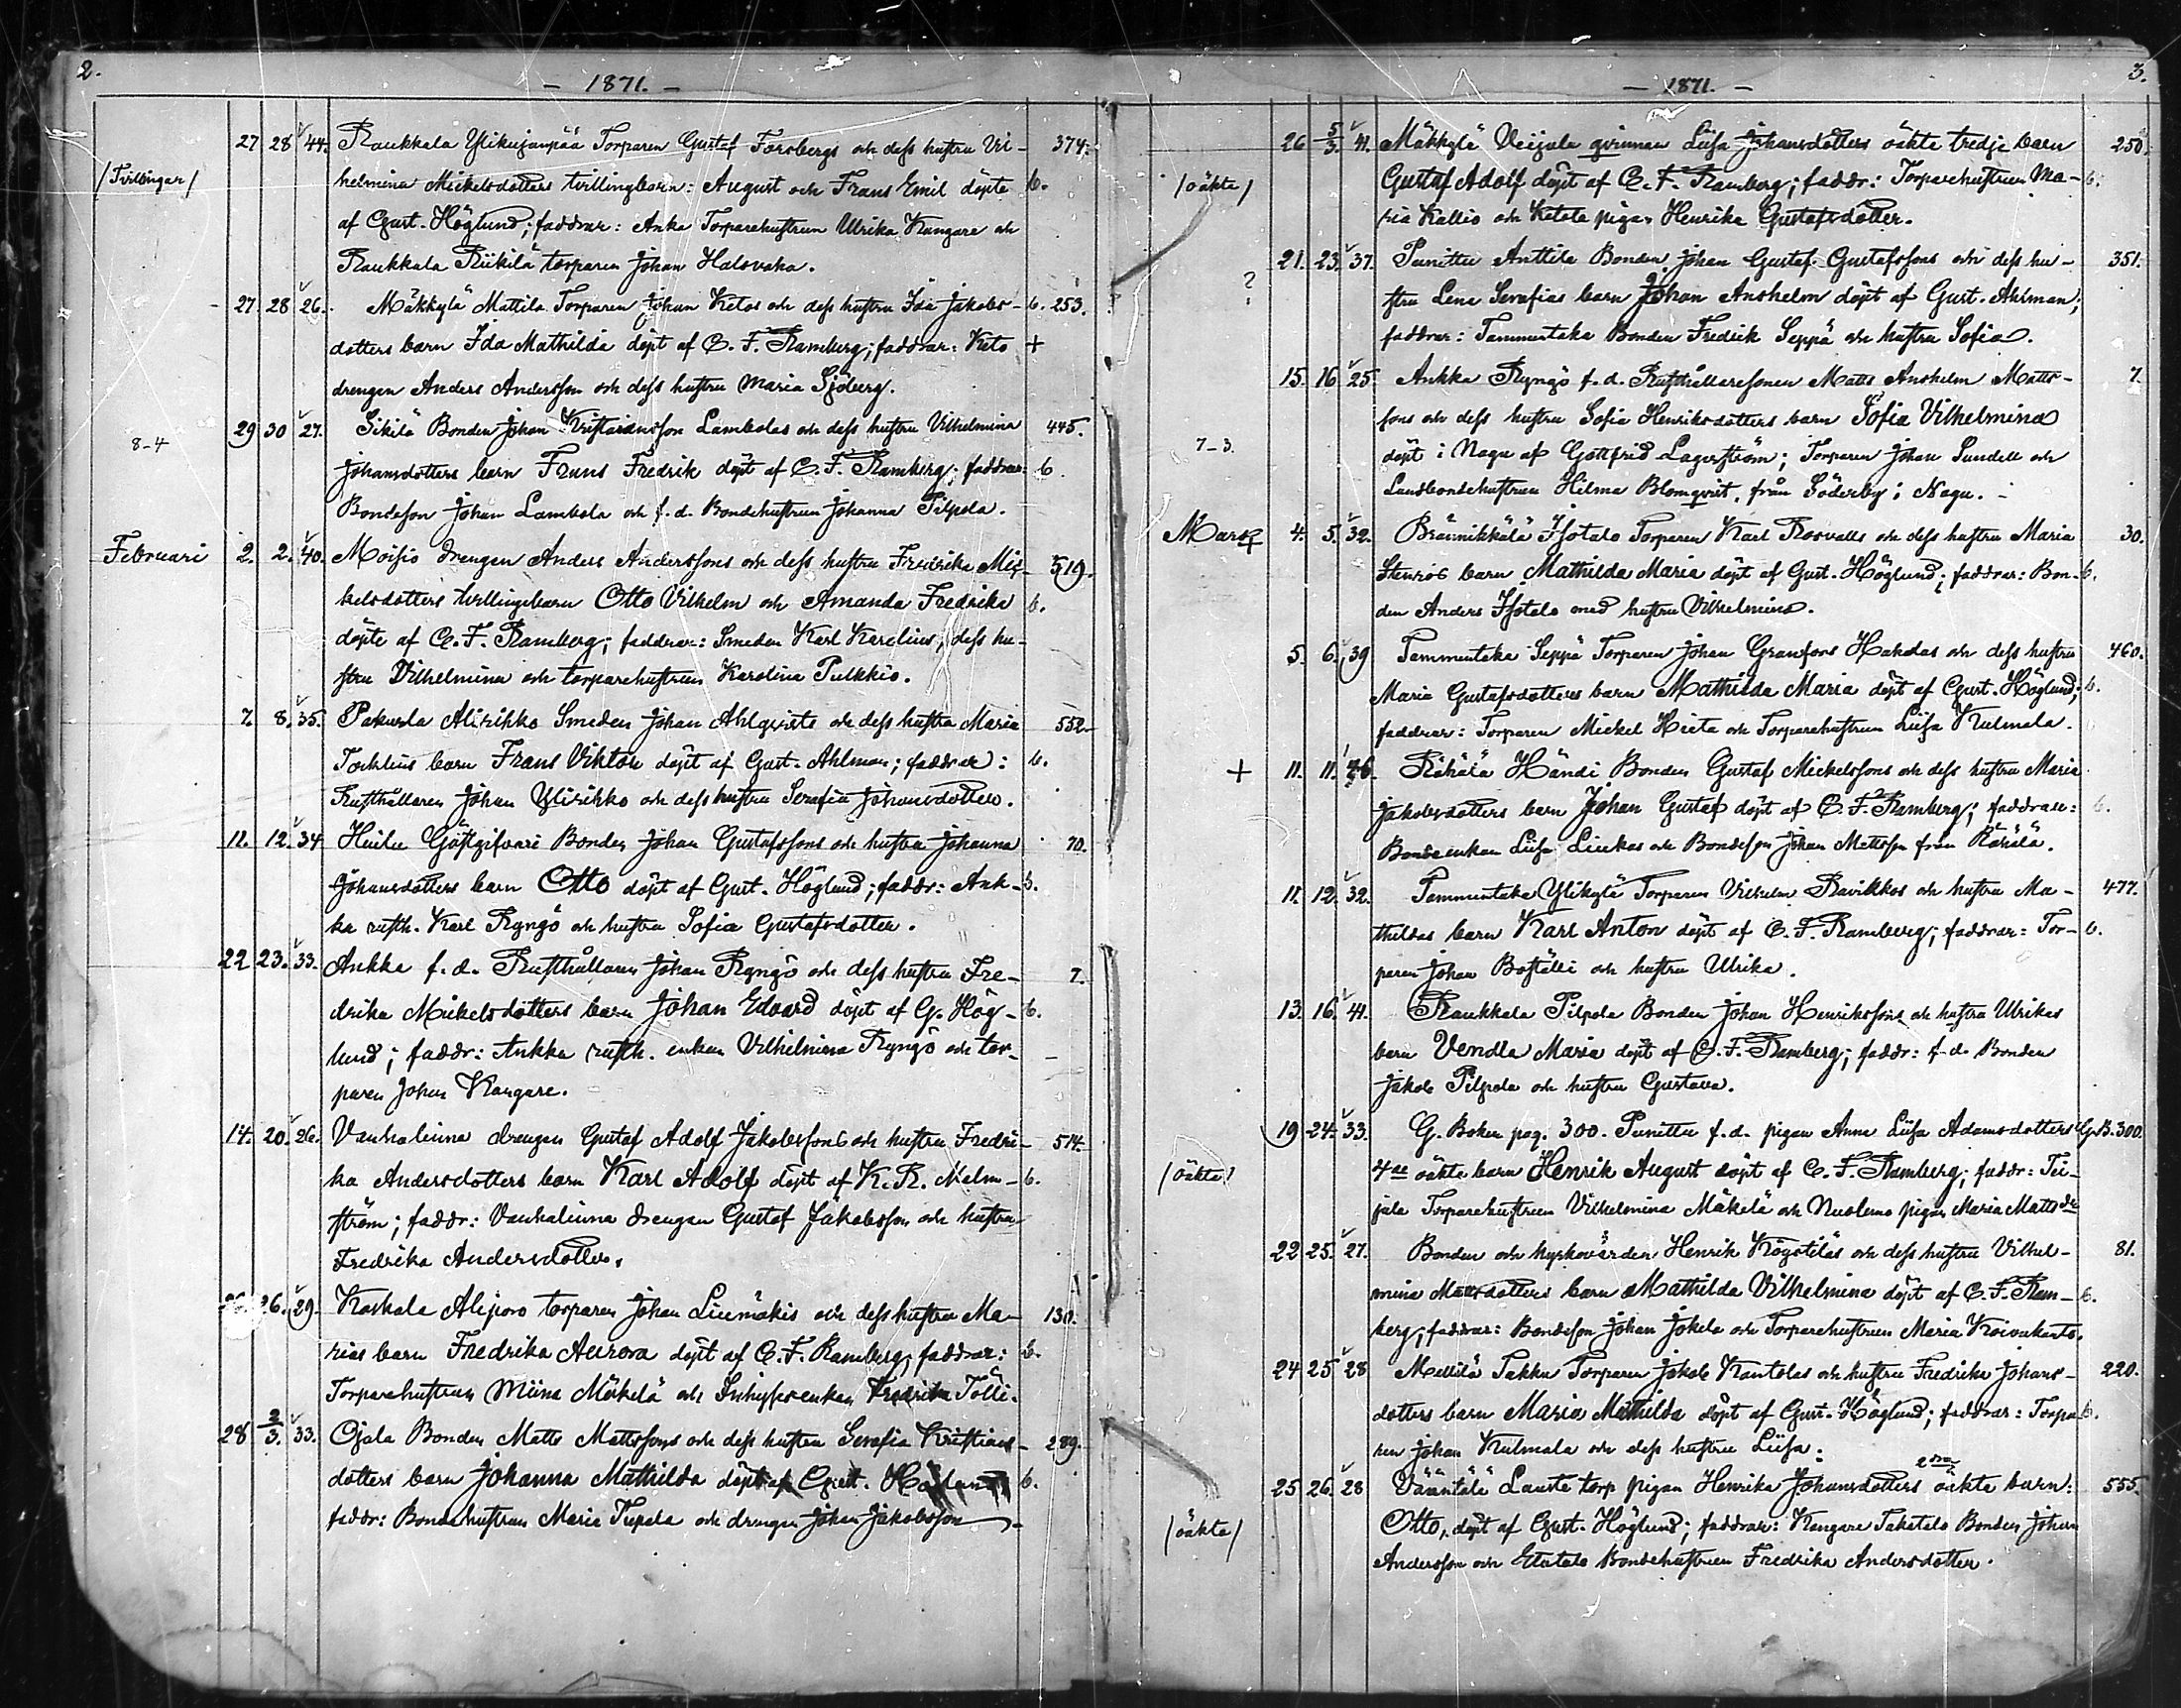 2.
- 1871. -
27 28 44. Raukkala Ylikujanpää Torparen Gustaf Forsbergs och dess hustru Vil- 374.
/Tvillingar/ helmina Mickelsdotters tvillingbarn: August och Frans Emil döpte b.
af Gust. Höglund; faddrar: Anka Torparehustrun Ulrika Kangare och
Raukkala Riikilä torparen Johan Halsvaha.
27. 28 26. Mäkkylä Mattila Torparen Johan Ketos och dess hustru Ida Jakobs- b. 253.
dotters barn Ida Mathilda döpt af C. F. Ramberg; faddrar: Keto +
drengen Anders Andersson och dess hustru Maria Sjöberg.
8-4 29 30 27. Sikilä Bonden Johan Kristiansson Lambolas och dess hustru Vilhelmina 445.
Johansdotters barn Frans Fredrik döpt af C. F. Ramberg; faddrar: b
Bondeson Johan Lambola och f. d. Bondehustrun Johanna Pilpola.
Februari 2. 2. 40. Moisio drengen Anders Anderssons och dess hustru Fredrika Mic- 519.
kelsdotters tvillingebarn Otto Vilhelm och Amanda Fredrika b.
döpte af C. F. Ramberg; faddrar: Smeden Karl Karelius, dess hu-
stru Vilhelmina och torparehustrun Karolina Pulkkio.
7. 8. 35. Pakurla Alirihko Smeden Johan Ahlqvists och dess hustru Maria 552.
barn Frans Viktor döpt af Gust. Ahlman; faddrar: b.
Rusthållaren Johan Ylirihko och dess hustru Serafia Johansdotter.
11. 12. 34 Gästgifvari Bonden Johan Gustafssons och hustru Johanna 70.
Johansdotters barn Otto döpt af Gust. Höglund; faddr: Ank- b.
ka rusth. Karl Ryngö och hustru Sofia Gustafsdotter.
22 23. 33. Ankka f. d. Rusthållaren Johan Ryngö och dess hustru Fre- 7.
drika Mickelsdotters barn Johan Edvard döpt af G. Hög- b.
lund; faddr: Ankka rusth. enkan Vilhelmina Ryngö och tor-
paren Johan Kangare.
14. 20. 26. Vanhalinna drengen Gustaf Adolf Jakobssons och hustru Fredri- 514.
ka Andersdotters barn Karl Adolf döpt af K. R. Malm- b.
ström; faddr: Vanhalinna drengen Gustaf Jakobsson och hustru
Fredrika Andersdotter.
26. 29. Koskala Alijoro torparen Johan Liinmäkis och dess hustru Ma- 130.
rias barn Fredrika Aurora döpt af C. F. Ramberg; faddrar: b.
Torparehustrun Miina Mäkelä och Inhysesenkan Fredrika Tölli.
28 2/3. 33. Ojala Bonden Matts Mattssons och dess hustru Serafia Kristians- 289.
dotters barn Johanna Mathilda döpt af Gust. Höglund b.
faddr: Bondehustrun Maria Tupala och drengen Johan Jakobsson.
3.
- 1871. -
26 5/3. 41. Mäkkylä Veijola qvinnan Liisa Johansdotters oäkta tredje barn 250.
/oäkta/ Gustaf Adolf döpt af C. F. Ramberg; faddr: Torparehustrun Ma- b.
ria Kallio och Ketola pigan Henrika Gustafsdotter.
21. 23. 37. Punittu Anttila Bonden Johan Gustaf Gustafssons och dess hu- 351.
? stru Lena Serafias barn Johan Anshelm döpt af Gust. Ahlman;
faddrar: Tammentaka Bonden Fredrik Seppä och hustru Sofia.
15. 16 25 Ankka Ryngö f. d. Rusthållaresonen Matts Anshelm Matts- 7.
sons och dess hustru Sofia Henriksdotters barn Sofia Vilhelmina
7-3. döpt i Nagu af Gottfrid Lagerström; Torparen Johan Sundell och
Landbondehustrun Hilma Blomqvist, från Söderby i Nagu.
Mars 4. 5. 32. Brännikkälä Isotalo Torparen Karl Rosvalls och dess hustru Maria 30.
Stenroos barn Mathilda Maria döpt af Gust. Höglund; faddrar: Bon- b.
den Anders Isotalo med hustru Vilhelmina.
5. 6. 39 Tammentaka Seppä Torparen Johan Granfors Hakalas och dess hustru 460.
Maria Gustafsdotters barn Mathilda Maria döpt af Gust. Höglund; b.
faddrar: Torparen Mickel Hieta och Torparehustrun Liisa Kulmala.
+ 11. 11. 26. Rähälä Händi Bonden Gustaf Mickelssons och dess hustru Maria
Jakobsdotters barn Johan Gustaf döpt af C. F. Ramberg; faddrar: b.
Bondeenkan Liisa Liukas och Bondeson Johan Mattsson från Rähälä.
11. 12. 32. Tammentaka Ylikylä Torparen Vilhelm Ravikkos och hustru Ma- 477.
thildas barn Karl Anton döpt af C. F. Ramberg; faddrar: Tor- b.
paren Johan Boställi och hustru Ulrika.
13. 16. 41. Raukkala Pilpola Bonden Johan Henrikssons och hustru Ulrikas
barn Vendla Maria döpt af C. F. Ramberg; faddr: f. d. Bonden
Jakob Pilpola och hustru Gustava.
19 24. 33. G. Boken pag. 300. Punittu f. d. pigan Anna Liisa Adamsdotters G.B. 300.
/oäkta/ 4de oäkta barn Henrik August döpt af C. F. Ramberg; faddr: Tei-
jula Torparehustrun Vilhelmina Mäkelä och pigan Maria Mattsdr
22 25. 27. Bonden och kyrkovärden Henrik Krögstiläs och dess hustru Vilhel- 81.
mina Mattsdotters barn Mathilda Vilhelmina döpt af C. F. Ram- b.
berg; faddrar: Bondeson Johan Jokela och Torparehustrun Maria Koivukanto.
24 25 28 Mellilä Takku Torparen Jakob Kantolas och hustru Fredrika Johans- 220.
dotters barn Maria Mathilda döpt af Gust. Höglund; faddrar: Torpa b.
ren Johan Kulmala och dess hustru Liisa.
2dra
25 26. 28 Vääntälä Lauste torp pigan Henrika Johansdotters oäkta barn: 555.
/oäkta/ Otto, döpt af Gust. Höglund; faddrar: Kangare Takatalo Bonden Johan
Andersson och Etutalo Bondehustrun Fredrika Andersdotter.